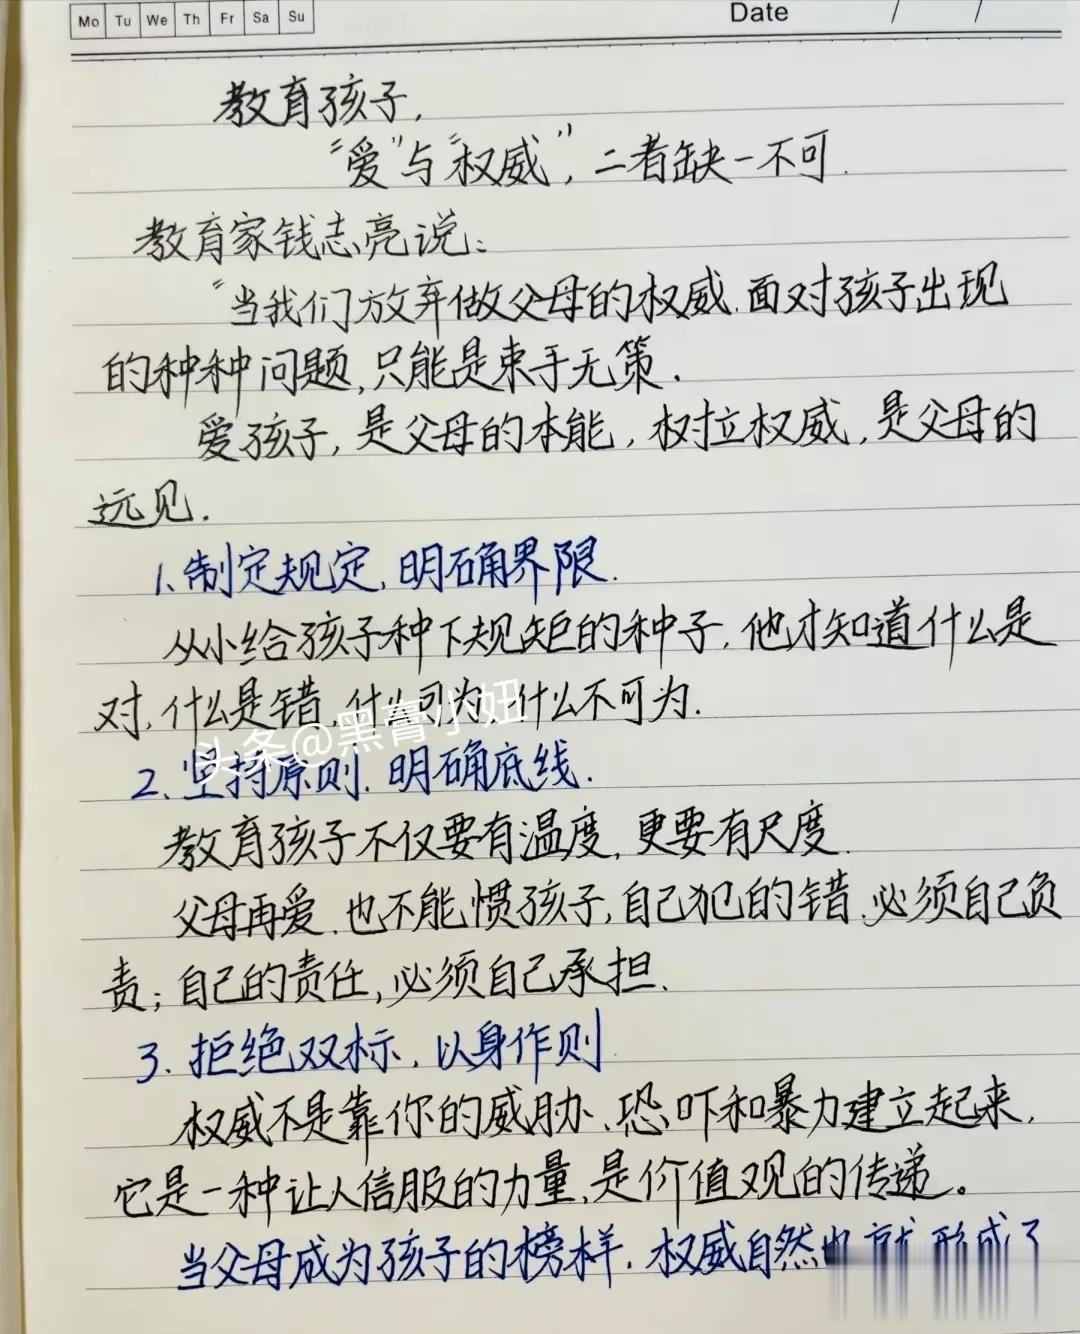 Mo Tu We Th Fr Sa Su
Date / /
教育孩子,
“爱”与“权威”,二者缺一不可.
教育家钱志亮说:
“当我们放弃做父母的权威.面对孩子出现
的种种问题,只能是束手无策.
爱孩子,是父母的本能,树立权威,是父母的
远见.
1.制定规定,明确界限.
从小给孩子种下规矩的种子,他才知道什么是
对,什么是错,什么可为,什么不可为.
头条@黑膏小妞
2、坚持原则.明确底线.
教育孩子不仅要有温度,更要有尺度.
父母再爱.也不能惯孩子,自己犯的错.必须自己负
责;自己的责任,必须自己承担.
3.拒绝双标,以身作则
权威不是靠你的威胁、恐吓和暴力建立起来,
它是一种让人信服的力量,是价值观的传递。
当父母成为孩子的榜样,权威自然也就形成了